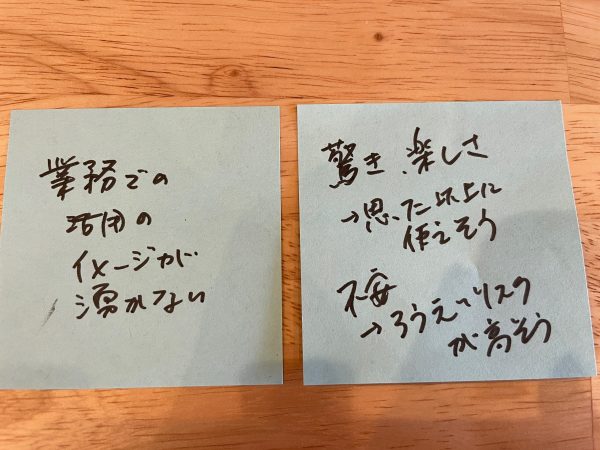 業務での
活用の
イメージが
湧かない
驚き、楽しさ
→思った以上に
使えそう
不安
→ろうえいリスク
が高そう